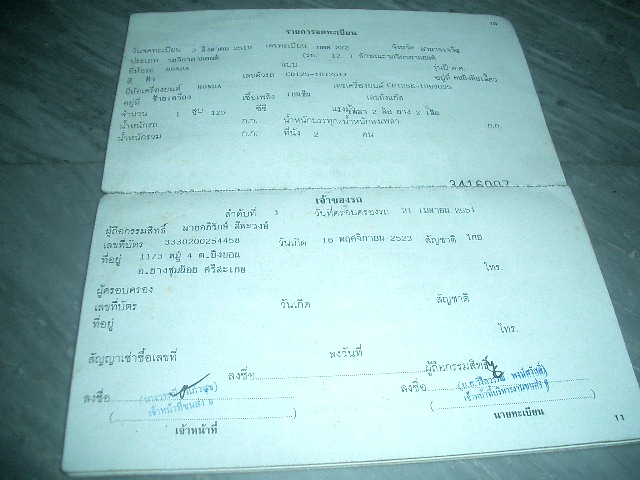 10
รายการจดทะเบียน
วันจดทะเบียน 2 สิงหาคม 2519 เลขทะเบียน กตต 222 จังหวัด อำนาจเจริญ
ประเภท รถจักรยานยนต์ (รย. 12 ) ลักษณะรถจักรยานยนต์
ยี่ห้อรถ HONDA แบบ รุ่นปี ค.ศ.
สี ฟ้า เลขตัวรถ อยู่ที่
ยี่ห้อเครื่องยนต์ HONDA เลขเครื่องยนต์
อยู่ที่ เชื้อเพลิง เบนซิน เลขถังแก๊ส
จำนวน 1 สูบ 125 ซีซี แรงม้า เพลา 2 ล้อ ยาง 2 เส้น
น้ำหนักรถ ก.ก. น้ำหนักบรรทุก/น้ำหนักลงเพลา ก.ก.
น้ำหนักรวม ก.ก. ที่นั่ง 2 คน
3416007
เจ้าของรถ
ลำดับที่ 1 วันที่ครอบครองรถ 21 เมษายน 2551
ผู้ถือกรรมสิทธิ์ นายอภิรักษ์ สีหะวงษ์
เลขที่บัตร 3330200254458 วันเกิด 16 พฤศจิกายน 2523 สัญชาติ ไทย
ที่อยู่ 11/3 หมู่ 4 ต.บึงบอน
อ.ยางชุมน้อย ศรีสะเกษ โทร.
ผู้ครอบครอง
เลขที่บัตร วันเกิด สัญชาติ
ที่อยู่ โทร.
สัญญาเช่าซื้อเลขที่ ลงวันที่
ลงชื่อ ผู้ถือกรรมสิทธิ์
ลงชื่อ ลงชื่อ
เจ้าหน้าที่ขนส่ง
เจ้าหน้าที่ นายทะเบียน
11